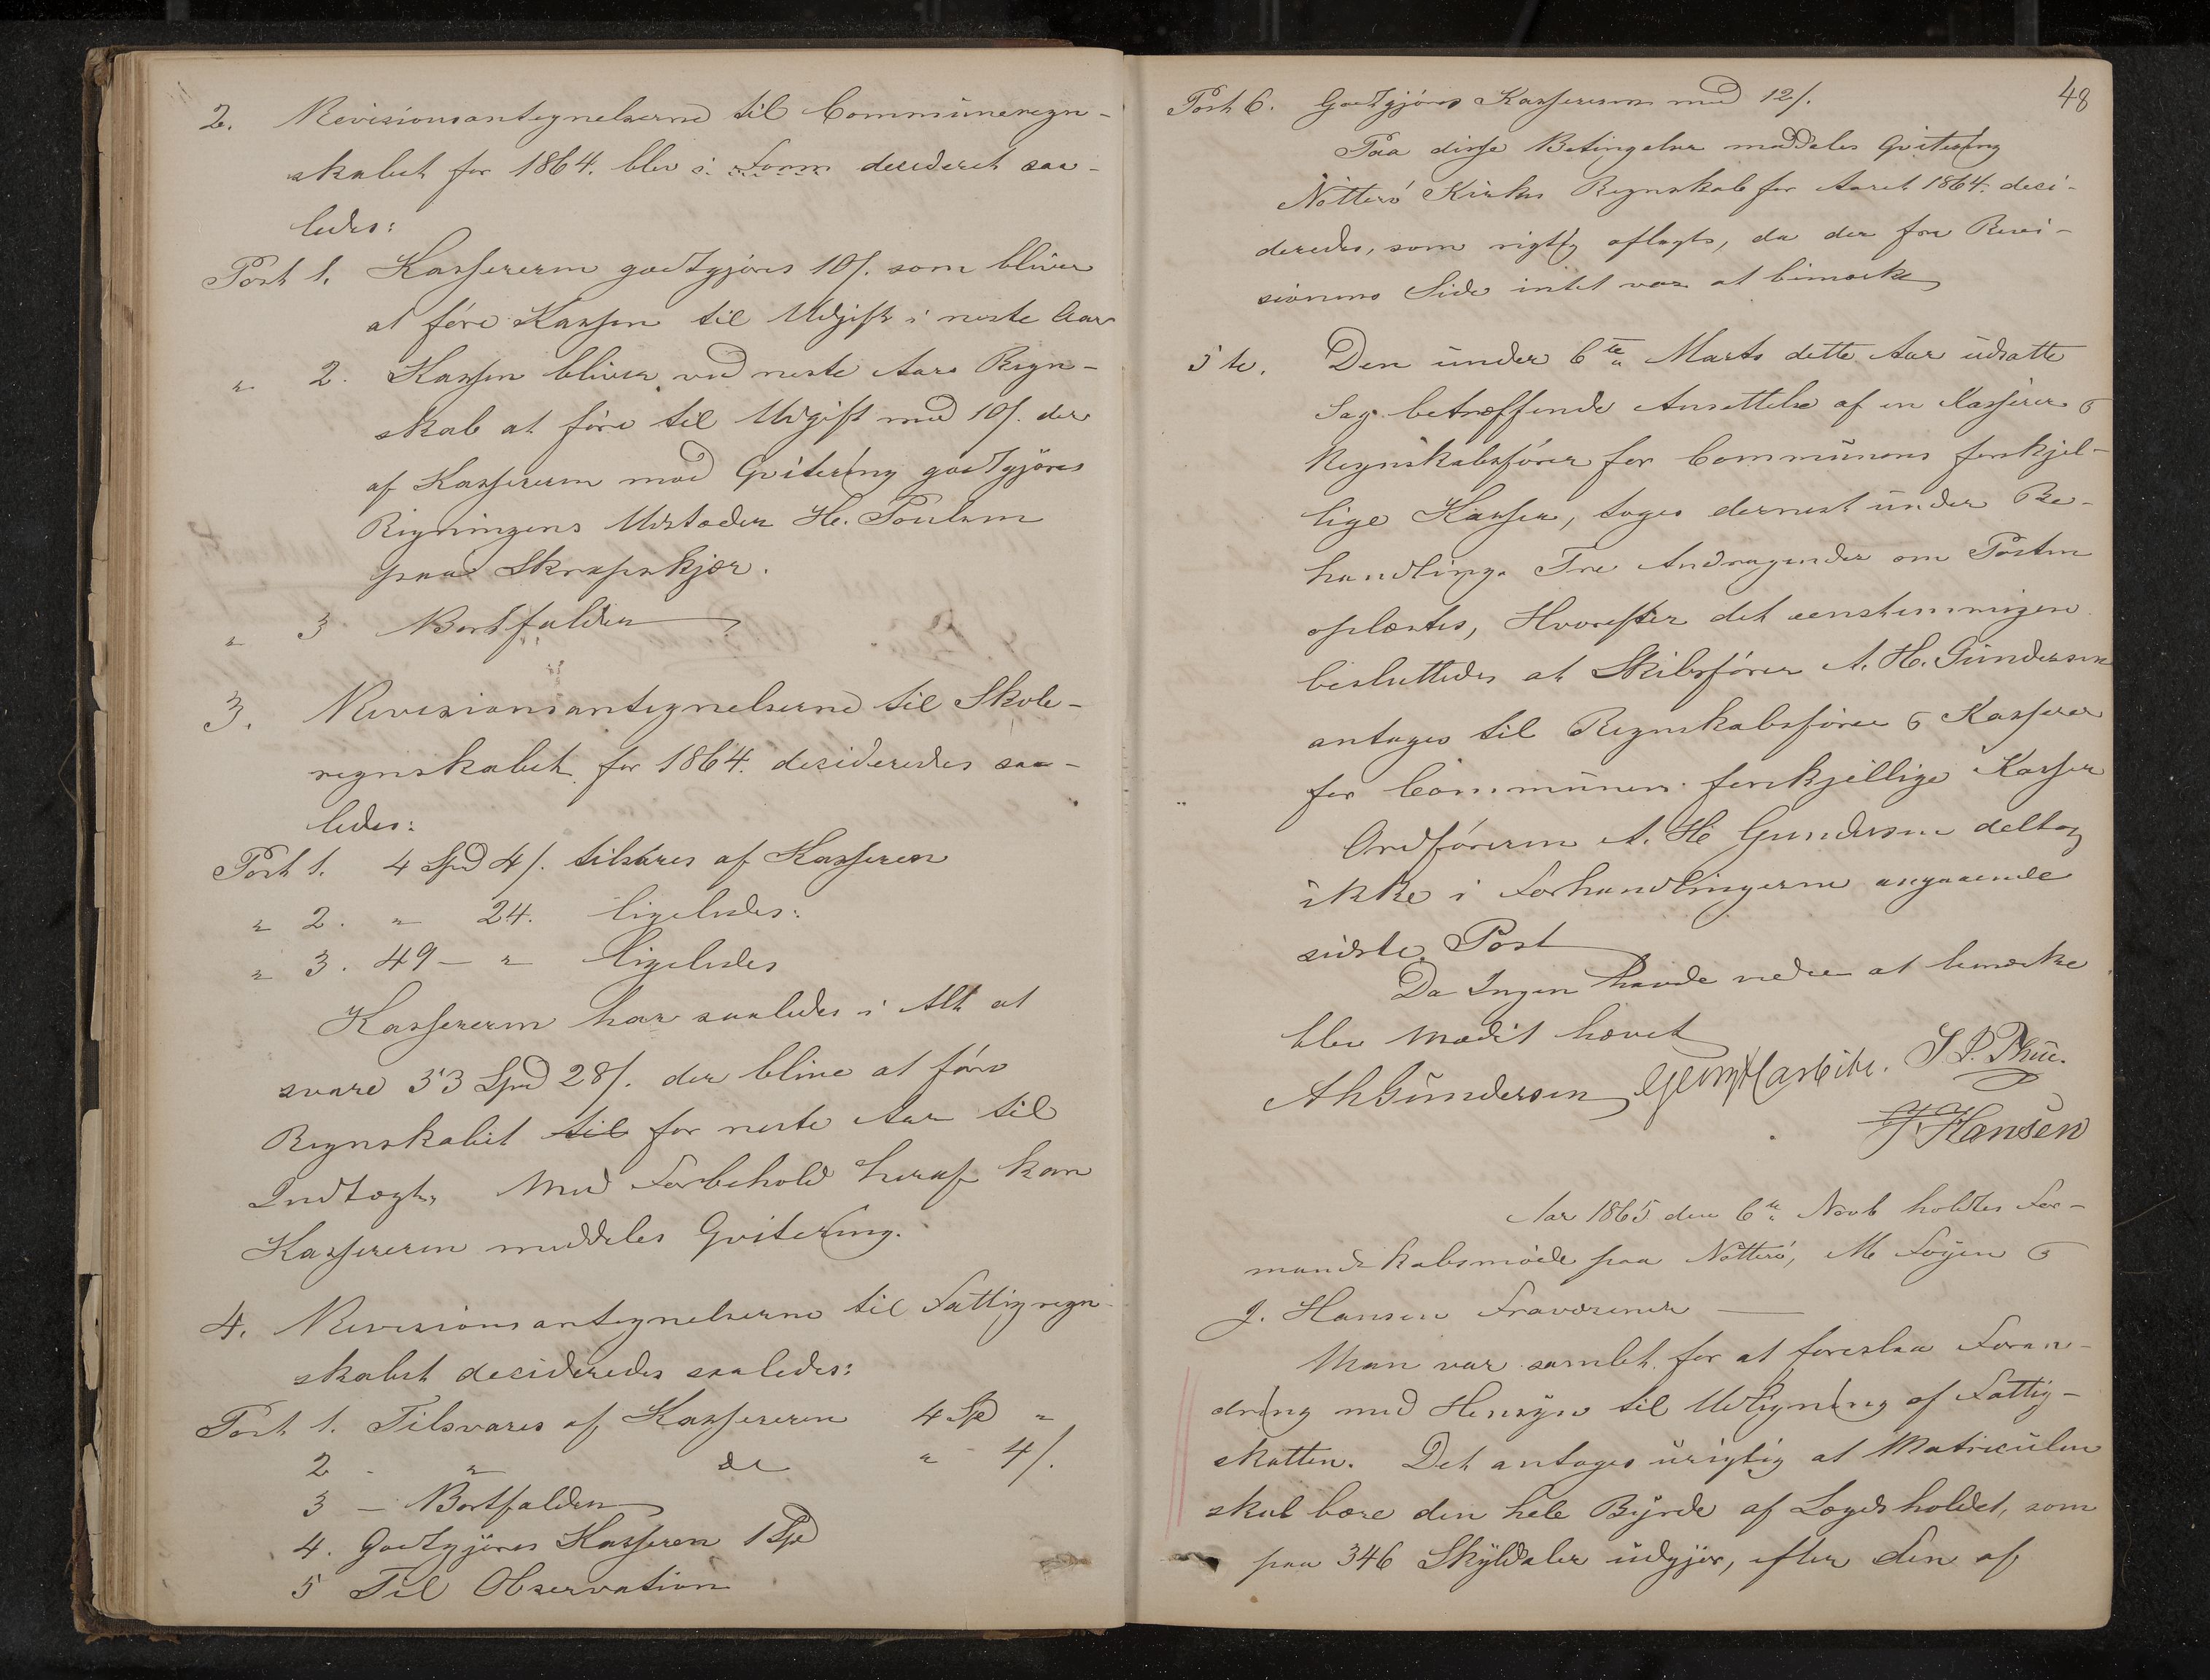 2. Revisionsantegnelserne til Communeregn-
skabet for 1864. blev i Form decideret saa-
ledes:
Post 1. Kassereren godtgjöres 10 /. som bliver
at före Kassen til Udgift i neste Aar
" 2. Kassen bliver ved neste Aars Regn-
skab at före til Udgift med 10 /. der
af Kassereren mod Qvitering godtgjöres
Regningens Udsteder H. Poulsen
paa Skrapskjær.
" 3 Bortfalder
3. Revisionsantegnelserne til Skole-
regnskabet for 1864. decideredes saa-
ledes:
Post 1. 4 Spd 4 /. tilsvares af Kasseren
" 2. " 24. ligeledes:
" 3. 49 – " ligeledes
Kassereren har saaledes i Alt at
svare 53 Spd 28 /. der blive at före
Regnskabet til for neste Aar til
Indtægt. Med Forbehold heraf kan
Kassereren meddeles Qvitering.
4. Revisionsantegnelserne til Fattigregn-
skabet decideredes saaledes:
Post 1. Tilsvares af Kassereren 4 Sp "
2 - " do " 4 /.
3 – Bortfalder
4. Godtgjöres Kasseren 1 Spd
5 Til Observation
48
Post 6. Godtgjöres Kassereren med 12 /.
Paa disse Betingelser meddeles Qvitering
Nötterö Kirkes Regnskab for Aaret 1864. deci-
deredes, som rigtig aflagts, da der fra Revi-
sionens Side intet var at bemærke
5te. Den under 6te Marts dette Aar udsatte
Sag betræffende Ansettelse af en Kasserer &
Regnskabsförer for Communens forskjel-
lige Kasser, toges dernest under Be-
handling. Tre Andragender om Posten
oplæstes, Hvorefter det eenstemmigen
besluttedes at Skibsförer A. H. Gundersen
antages til Regnskabsförer & Kasserer
for Communens forskjellige Kasser
Ordföreren A. H. Gundersen deltog
ikke i Forhandlingerne angaaende
sidste Post
Da Ingen havde videre at bemærke
blev Mödet hævet
AHGundersen Georg J. P.
J. Hansen
Aar 1865 den 6te Novb holdtes For-
mandskabsmöde paa Nötterö, M Föyen &
J. Hansen Fraværende
Man var samlet for at foreslaa Foran-
dring med Hensyn til Udligning af Fattig-
skatten. Det antoges urigtig at Matriculen
skal bære den hele Byrde af Lægdsholdet, som
paa 346 Skylddaler udgjör, efter den af